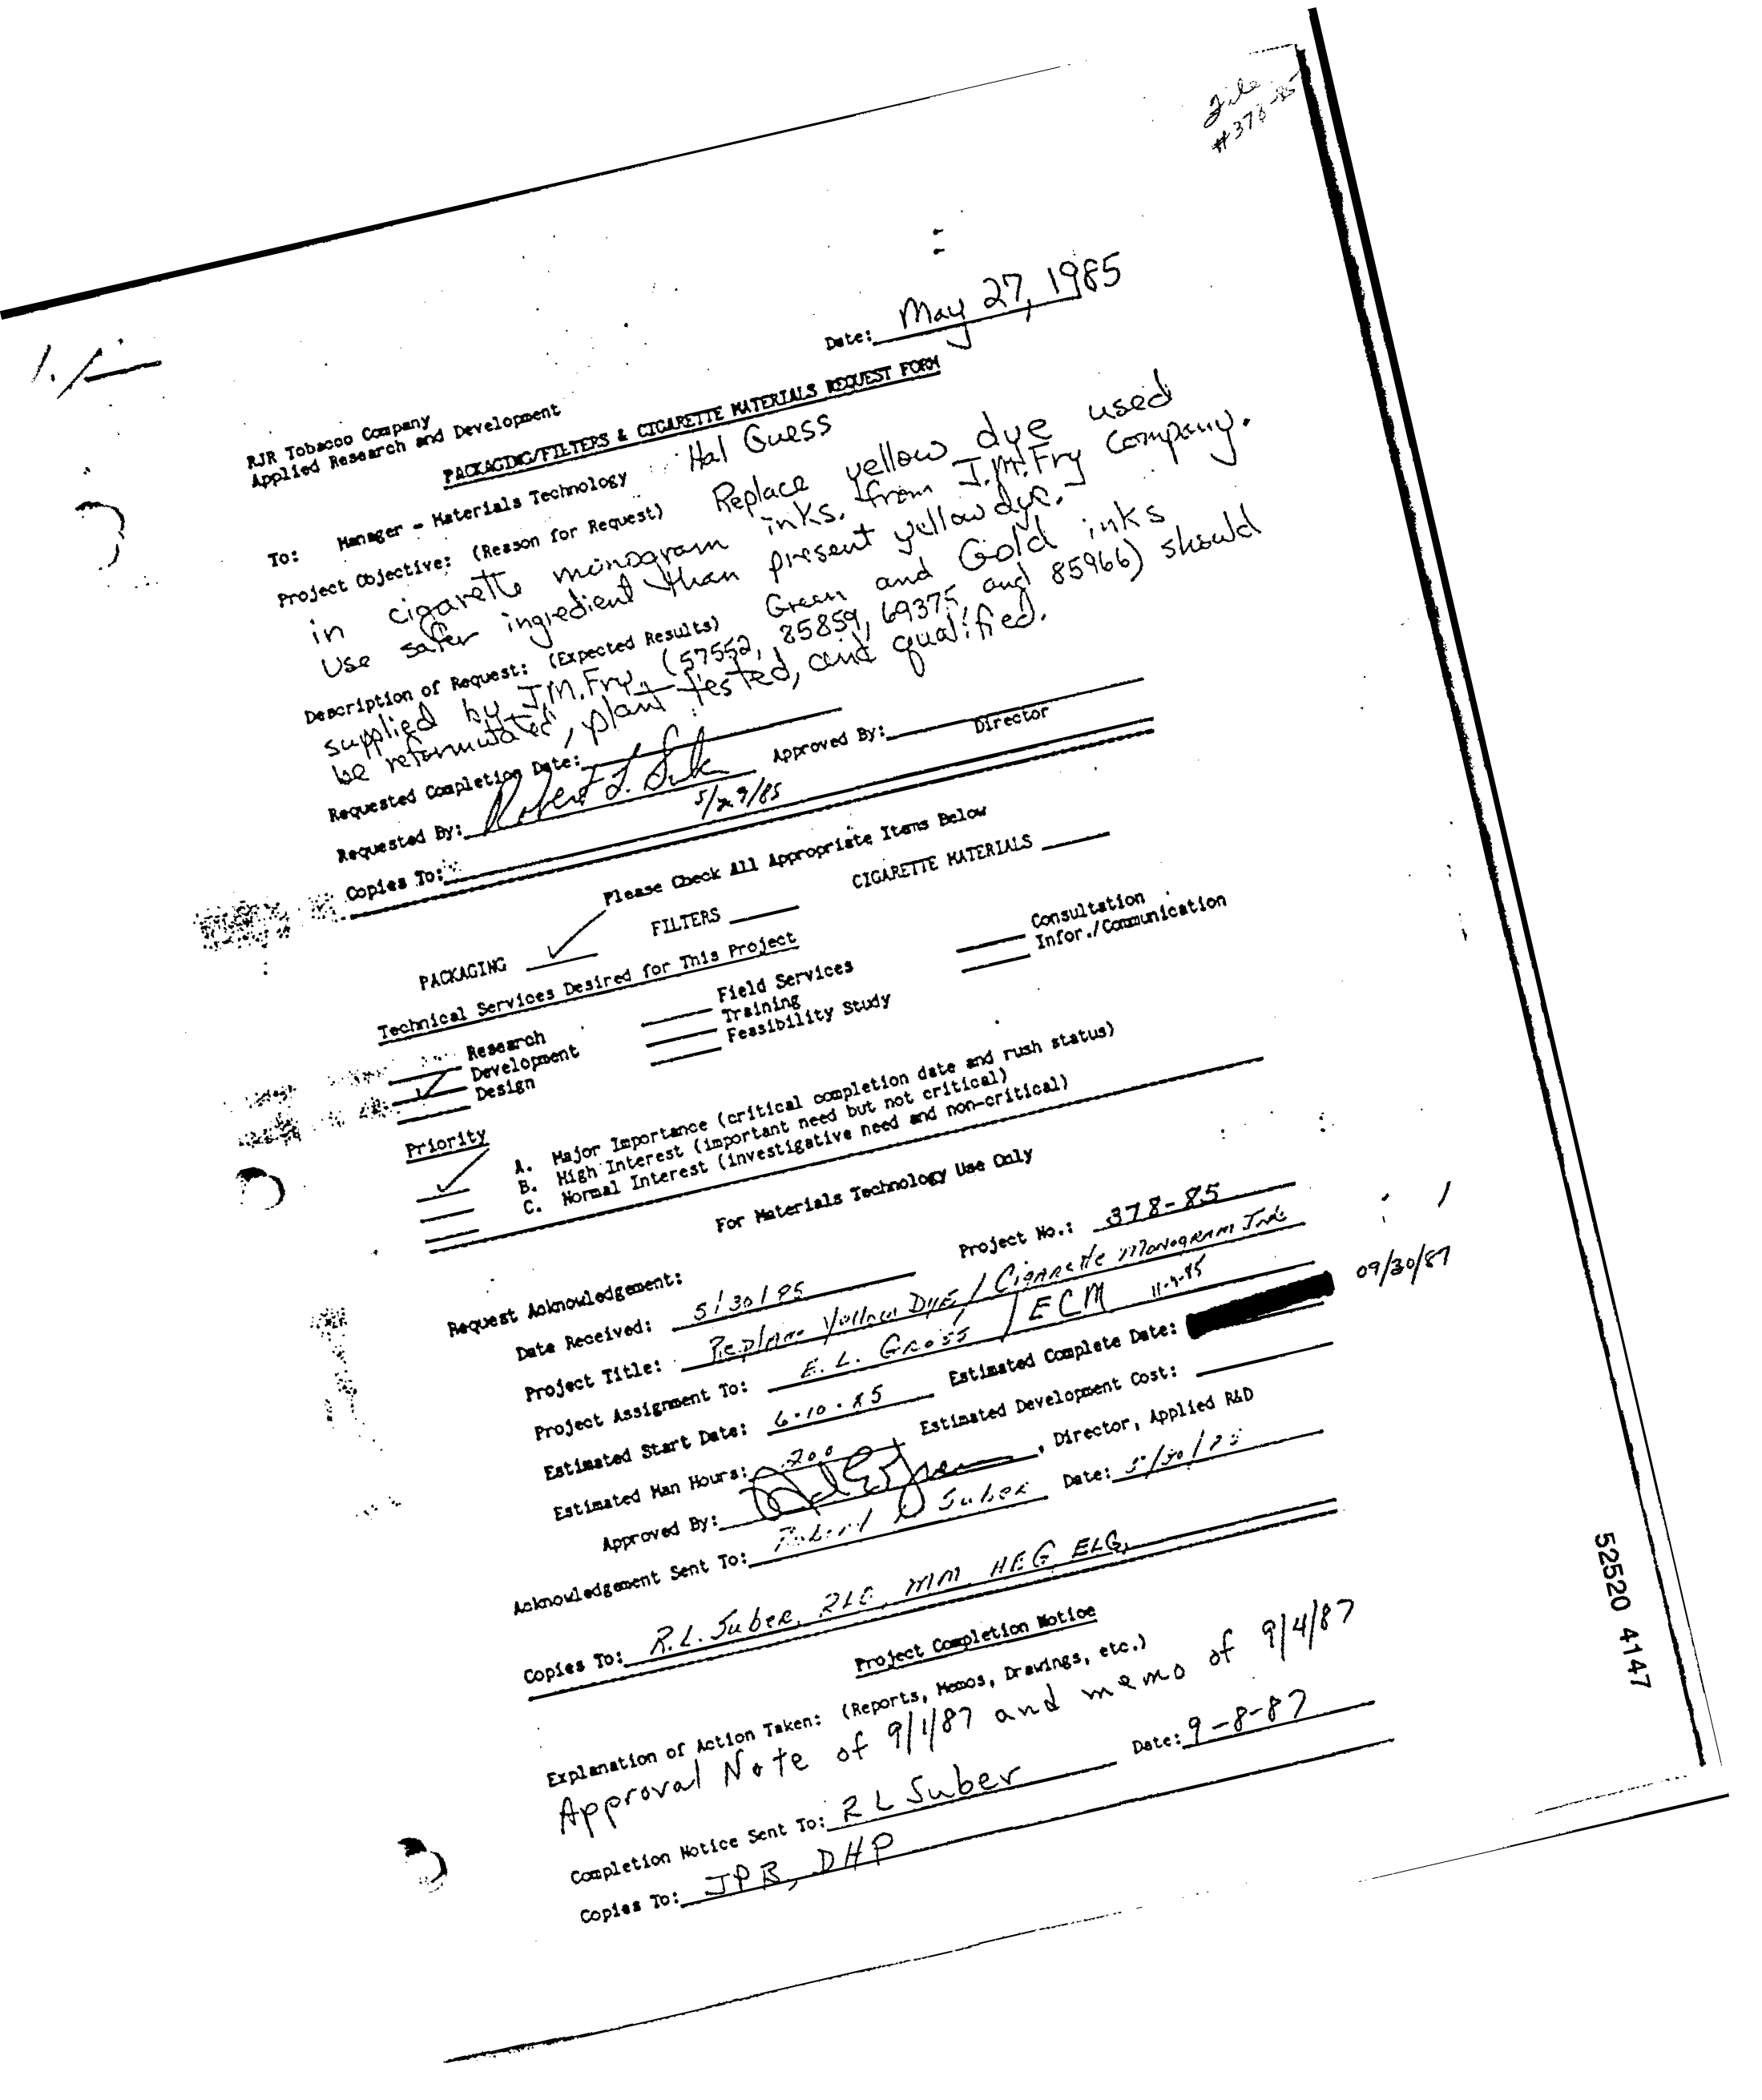 File
#378-85
Date: May 27, 1985
RJR Tobacco Company
Applied Research and Development
PACKAGING/FILTERS & CIGARETTE MATERIALS REQUEST FORM
To: Manager - Materials Technology Hal Guess
Project Objective: (Reason for Request) Replace yellow dye used
in cigarette monogram inks. from J.M. Fry Company.
Use safer ingredient than present yellow dye.
Description of Request: (Expected Results) Green and Gold inks
supplied by J.M. Fry, (57552, 85859, 69375, and 85966) should
be reformulated, plant tested, and qualified.
Requested Completion Date:
Requested By: Robert L. Suber Approved By:
Director
5/29/85
Copies To:
Please Check All Appropriate Items Below
PACKAGING ✓ FILTERS CIGARETTE MATERIALS
Technical Services Desired for This Project
Research Field Services Consultation
✓ Development Training Infor./Communication
Design Feasibility Study
Priority
✓ A. Major Importance (critical completion date and rush status)
B. High Interest (important need but not critical)
C. Normal Interest (investigative need and non-critical)
For Materials Technology Use Only
Request Acknowledgement: Project No.: 378-85
Date Received: 5/30/85
Project Title: Replace Yellow Dye / Cigarette Monogram Ink
Project Assignment To: E. L. Gross / ECM
Estimated Start Date: 6-10-85 Estimated Complete Date: 09/30/87
Estimated Man Hours: 200 Estimated Development Cost:
Approved By: , Director, Applied R&D
Acknowledgement Sent To: Robert L Suber Date: 5/30/85
Copies To: R.L. Suber, RLC, MM, HEG, ELG,
Project Completion Notice
Explanation of Action Taken: (Reports, Memos, Drawings, etc.)
Approval Note of 9/1/87 and memo of 9/4/87
Completion Notice Sent To: R L Suber Date: 9-8-87
Copies To: JPB, DHP
52520 4147